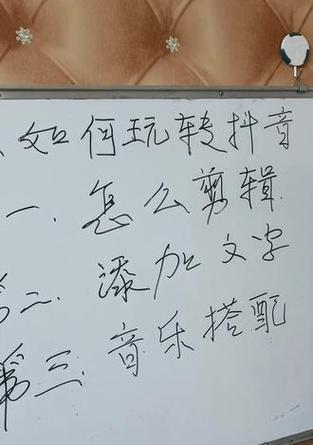 如何玩转抖音
一. 怎么剪辑
第二. 添加文字
第三. 音乐搭配